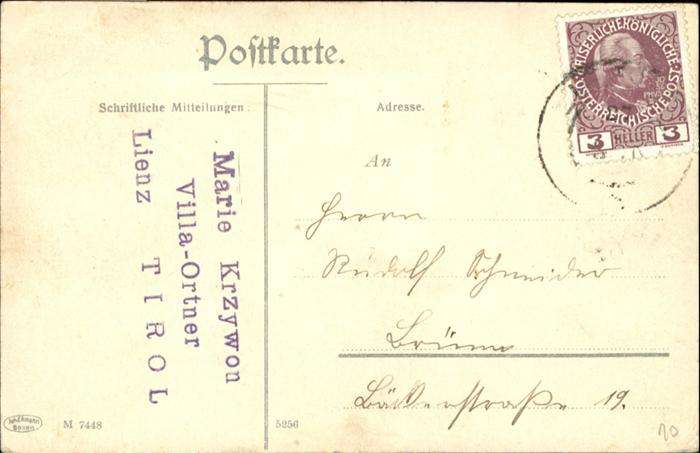 Postkarte.
Schriftliche Mitteilungen.
Adresse.
Marie Krzywon
Villa-Ortner
Lienz TIROL
An
Herrn
Rudolf Schneider
Brünn
Bäckerstraße 19.
KAISERLICHE KÖNIGLICHE
ÖSTERREICHISCHE POST
3 HELLER 3
M 7448
5256